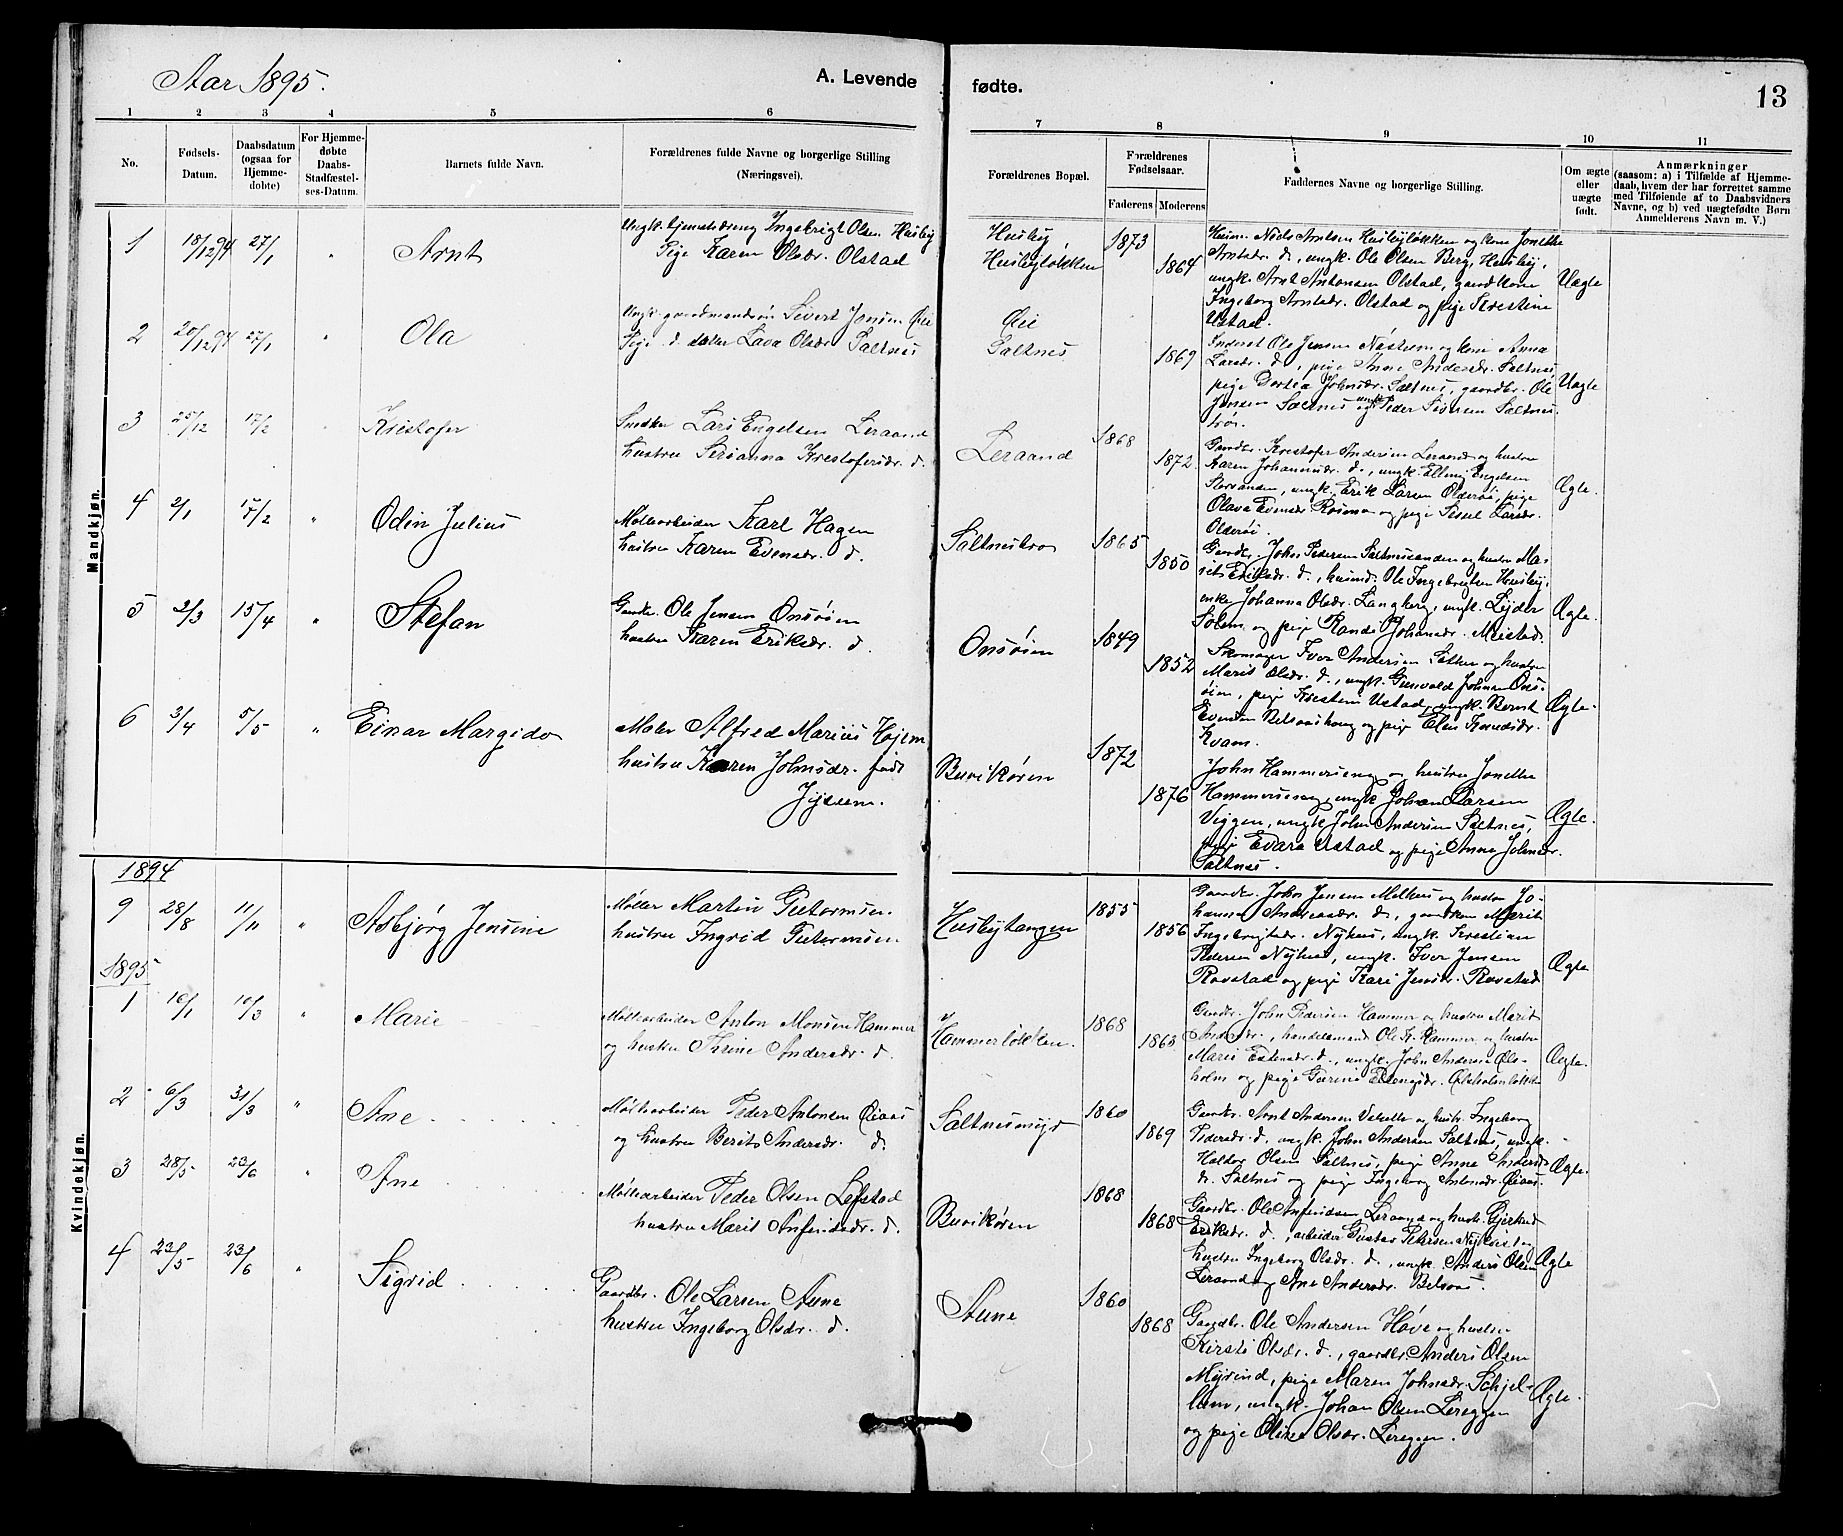 Aar 1895.
A. Levende
fødte.
13
1 2 3 4 5 6
7 8 9 10 11
No.
Fødsels-Datum.
Daabsdatum (ogsaa for Hjemme-døbte)
For Hjemme-døbte Daabs-Stadfæstel-ses-Datum.
Barnets fulde Navn.
Forældrenes fulde Navne og borgerlige Stilling
(Næringsvei).
Forældrenes Bopæl.
Forældrenes Fødselsaar.
Faderens Moderens
Faddernes Navne og borgerlige Stilling.
Om ægte eller uægte født.
Anmærkninger
(saasom: a) i Tilfælde af Hjemme-
daab, hvem der har forrettet samme
med Tilføiende af to Daabsvidners
Navne, og b) ved uægtefødte Børn
Anmelderens Navn m. V.)
Mandkjøn.
1 18/12 94 27/1 " Arnt
Ungk. tjenestedreng Ingebrigt Olsen Husby
Pige Karen Olsdr. Olstad
Husby
Husbyløkken
1873
1864
Husm. Nils Arntsen Husbyløkken og kone Jonetta
Arntsdr. d., ungk. Ole Olsen Berg, Husby,
ungk. Arnt Antonsen Olstad, gaardkone
Ingeborg Arntsdr. Olstad og pige Kirstine
Ustad.
Uægte
2 20/12 94 27/1 " Ola
Ungk. gaardmandssøn Sivert Jonsen Øie
Pige d. datter Lava Olsdr. Saltnes
Øie
Saltnes
1869
Inderst Ole Jensen Nástrem og kone Anna
Larsdr. d., pige Anne Andersdr. Saltnes,
pige Dortea Johnsdr. Saltnes, gaardbr. Ole
Jensen Saltnes og ungk. Peder Sivertsen Saltnes-
trøa.
Uægte
3 25/12 17/2 " Kristofer
Snedker Lars Engelsen Leraand
hustru Serianna Kristofersdr. d.
Leraand
1868
1872
Gaardbr. Kristofer Andersen Leraand og hustru
Karen Johannesdr. d., ungk. Elling Engelsen
Storsanden, ungk. Erik Larsen Olderøi, pige
Olava Evensdr. Rosmo og pige Sissel Larsdr.
Olderøi.
Ægte.
4 2/1 17/2 " Odin Julius
Mølearbeider Karl Hagen
hustru Karen Evensdr. d.
Saltnestrø
1865
1850
Gaardbr. John Pedersen Saltnessanden og hustru Ma-
rit Eriksdr. d., husmd. Ole Ingebrigtsen Husby,
enke Johanna Olsdr. Langberg, ungk. Lyder
Solem og pige Randi Johansdr. Meistad.
Ægte.
5 2/3 15/4 " Stefan
Gaardbr. Ole Jensen Onsøien
hustru Karen Eriksdr. d.
Onsøien
1849
1852
Skomager Iver Andersen Sæther og hustru
Marit Olsdr. d., ungk. Gunvald Johnsen Ons-
øien, pige Kristine Ustad, ungk. Bernt
Evensen Belsaashaug og pige Elen
Kvam.
Ægte.
6 3/4 5/5 " Einar Margido
Maler Alfred Marius Højem
hustru Karen Johnsdr. født
Buvikøren
1872
1876
John Hammerseng og hustru Jonetta
Hammerseng, ungk. Johan Larsen
Viggen, ungk. John Andersen Saltnes,
pige Edvarda Ustad og pige Anna Johnsdr.
Saltnes.
Ægte.
Kvindekjøn.
1894
9 28/8 11/11 " Asbjørg Jensine
Møller Martin Guttormsen
hustru Ingrid Guttormsen
Husbytangen
1855
1856
Gaardbr. John Jensen Melhus og hustru Jo-
hanna Andreasdr. d., gaardkone Marit
Ingebrigtsdr. Nyhus, ungk. Kristian
Pedersen Nyhus, ungk. Iver Jensen
Rovstad og pige Kari Jensdr. Rovstad
Ægte
1895
1 10/1 10/3 " Marie
Møllearbeider Anton Monsen Hammer
og hustru Trine Andersdr. d.
Hammerløkken.
1868
1863
Gaardbr. John Pedersen Hammer og hustru Marit
Andersdr., handelsmand Ole K. Hammer og hustru
Marit Estensdr. d., ungk. John Andersen Øls-
holm og pige Gurine Estensdr. Ølsholmløkken
Ægte.
2 6/3 31/3 " Ane
Møllearbeider Peder Antonsen Øiaas
og hustru Berit Andersdr. d.
Saltnesmyr
1860
1869
Gaardbr. Arnt Andersen Velsette og hustr. Ingeborg
Pedersdr. d., ungk. John Andersen Saltnes, ungk.
Haldor Olsen Saltnes, pige Anne Anders-
dr. Saltnes og pige Ingeborg Antonsdr. Øiaas.
Ægte.
3 28/5 23/6 " Ane
Møllearbeider Peder Olsen Lefstad
hustru Marit Anfindsdr. d.
Buvikøren
1868
1868
Gaardbr. Ole Anfindsen Leraand og hustr. Gjertrud
Eriksdr. d., arbeider Gustav Petersen Nykvist og
hustru Ingeborg Olsdr. d., ungk. Anders Olsen
Leraand og Ane Andersdr. Belsaas.
Ægte
4 23/5 23/6 " Sigrid
Gaardbr. Ole Larsen Aune
hustru Ingeborg Olsdr. d.
Aune
1860
1868
Gaardbr. Ole Andersen Hove og hustru
Kirsti Olsdr. d., gaardbr. Anders Olsen
Myrind, pige Maren Johnsdr. Schjel-
lum, ungk. Johan Olsen Lereggen
og pige Oline Olsdr. Lereggen.
Ægte.